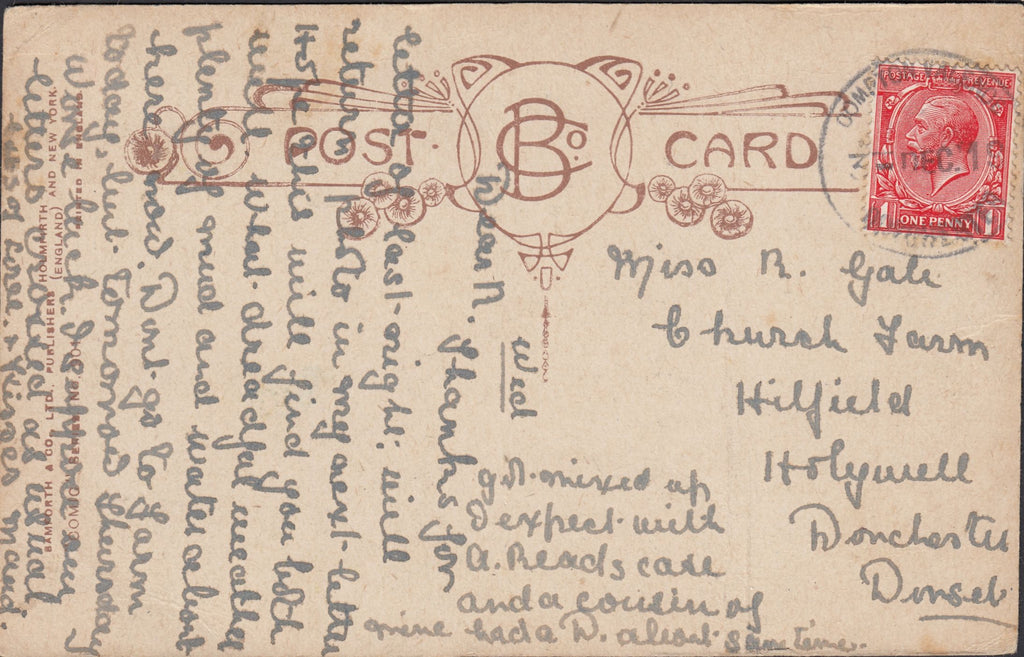 POST CARD
B Co
POSTAGE REVENUE
ONE PENNY
1 1
DEC. 1
Miss R. Gale
Church Farm
Hilfield
Holywell
Dorchester
Dorset
Wed
Dear R. Thanks for
letter of last night will
return photo in my next letter
Hope this will find you both
well what dreadful weather
plenty of mud and water about
here now. Dont go to farm
today, but tomorrow Thursday
Worse luck I suppose my
letters crossed as usual
love & kisses
got mixed up
I expect with
A. Reads case
and a cousin of
mine had a D. about same time.
BAMFORTH & CO., LTD. PUBLISHERS HOLMFIRTH AND NEW YORK
(ENGLAND)
PRINTED IN ENGLAND
SERIES NO.